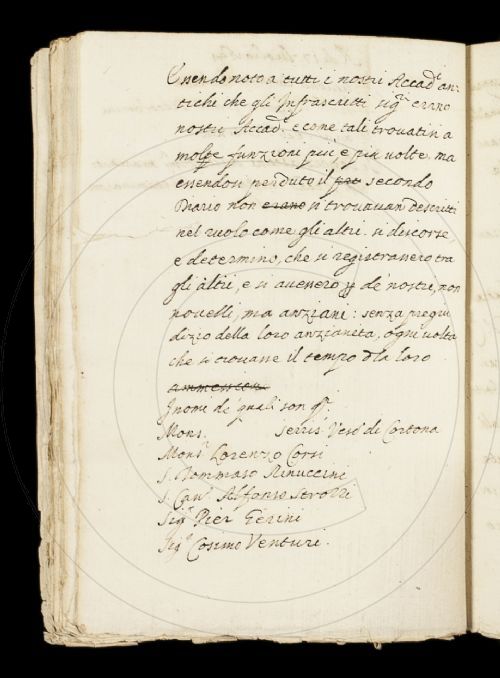 Essendo noto a tutti i nostri Accad.ci an-
tichi che gli Infrascritti sig.ri erano
nostri Accad.ci e come tali trovatisi a
molte funzioni più, e più volte, ma
essendosi perduto il secondo
Diario non erano si trovavan descritti
nel ruolo come gli altri, si discorse,
e determinò, che si registrassero tra
gli altri, e si avessero p de' nostri, non
novelli, ma anziani: senza pregiu
dizio della loro anzianità, ogni volta
che si trovasse il tempo d͞la loro
ammession.
I nomi de' quali son q.ti
Mons. Serris. Vesc.o di Cortona
Mons.r Lorenzo Corsi
S. Tommaso Rinuccini
S. Cav.r Alfonso Strozzi
Sig.r Pier Gerini
Sig.r Cosimo Venturi.